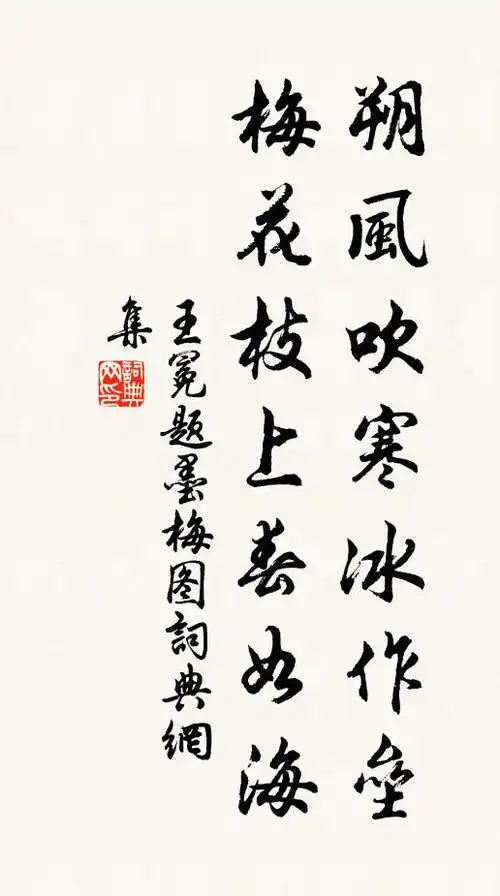 朔風吹寒冰作壘
梅花枝上春如海
王冕題墨梅图詞典網
集
詞典网印